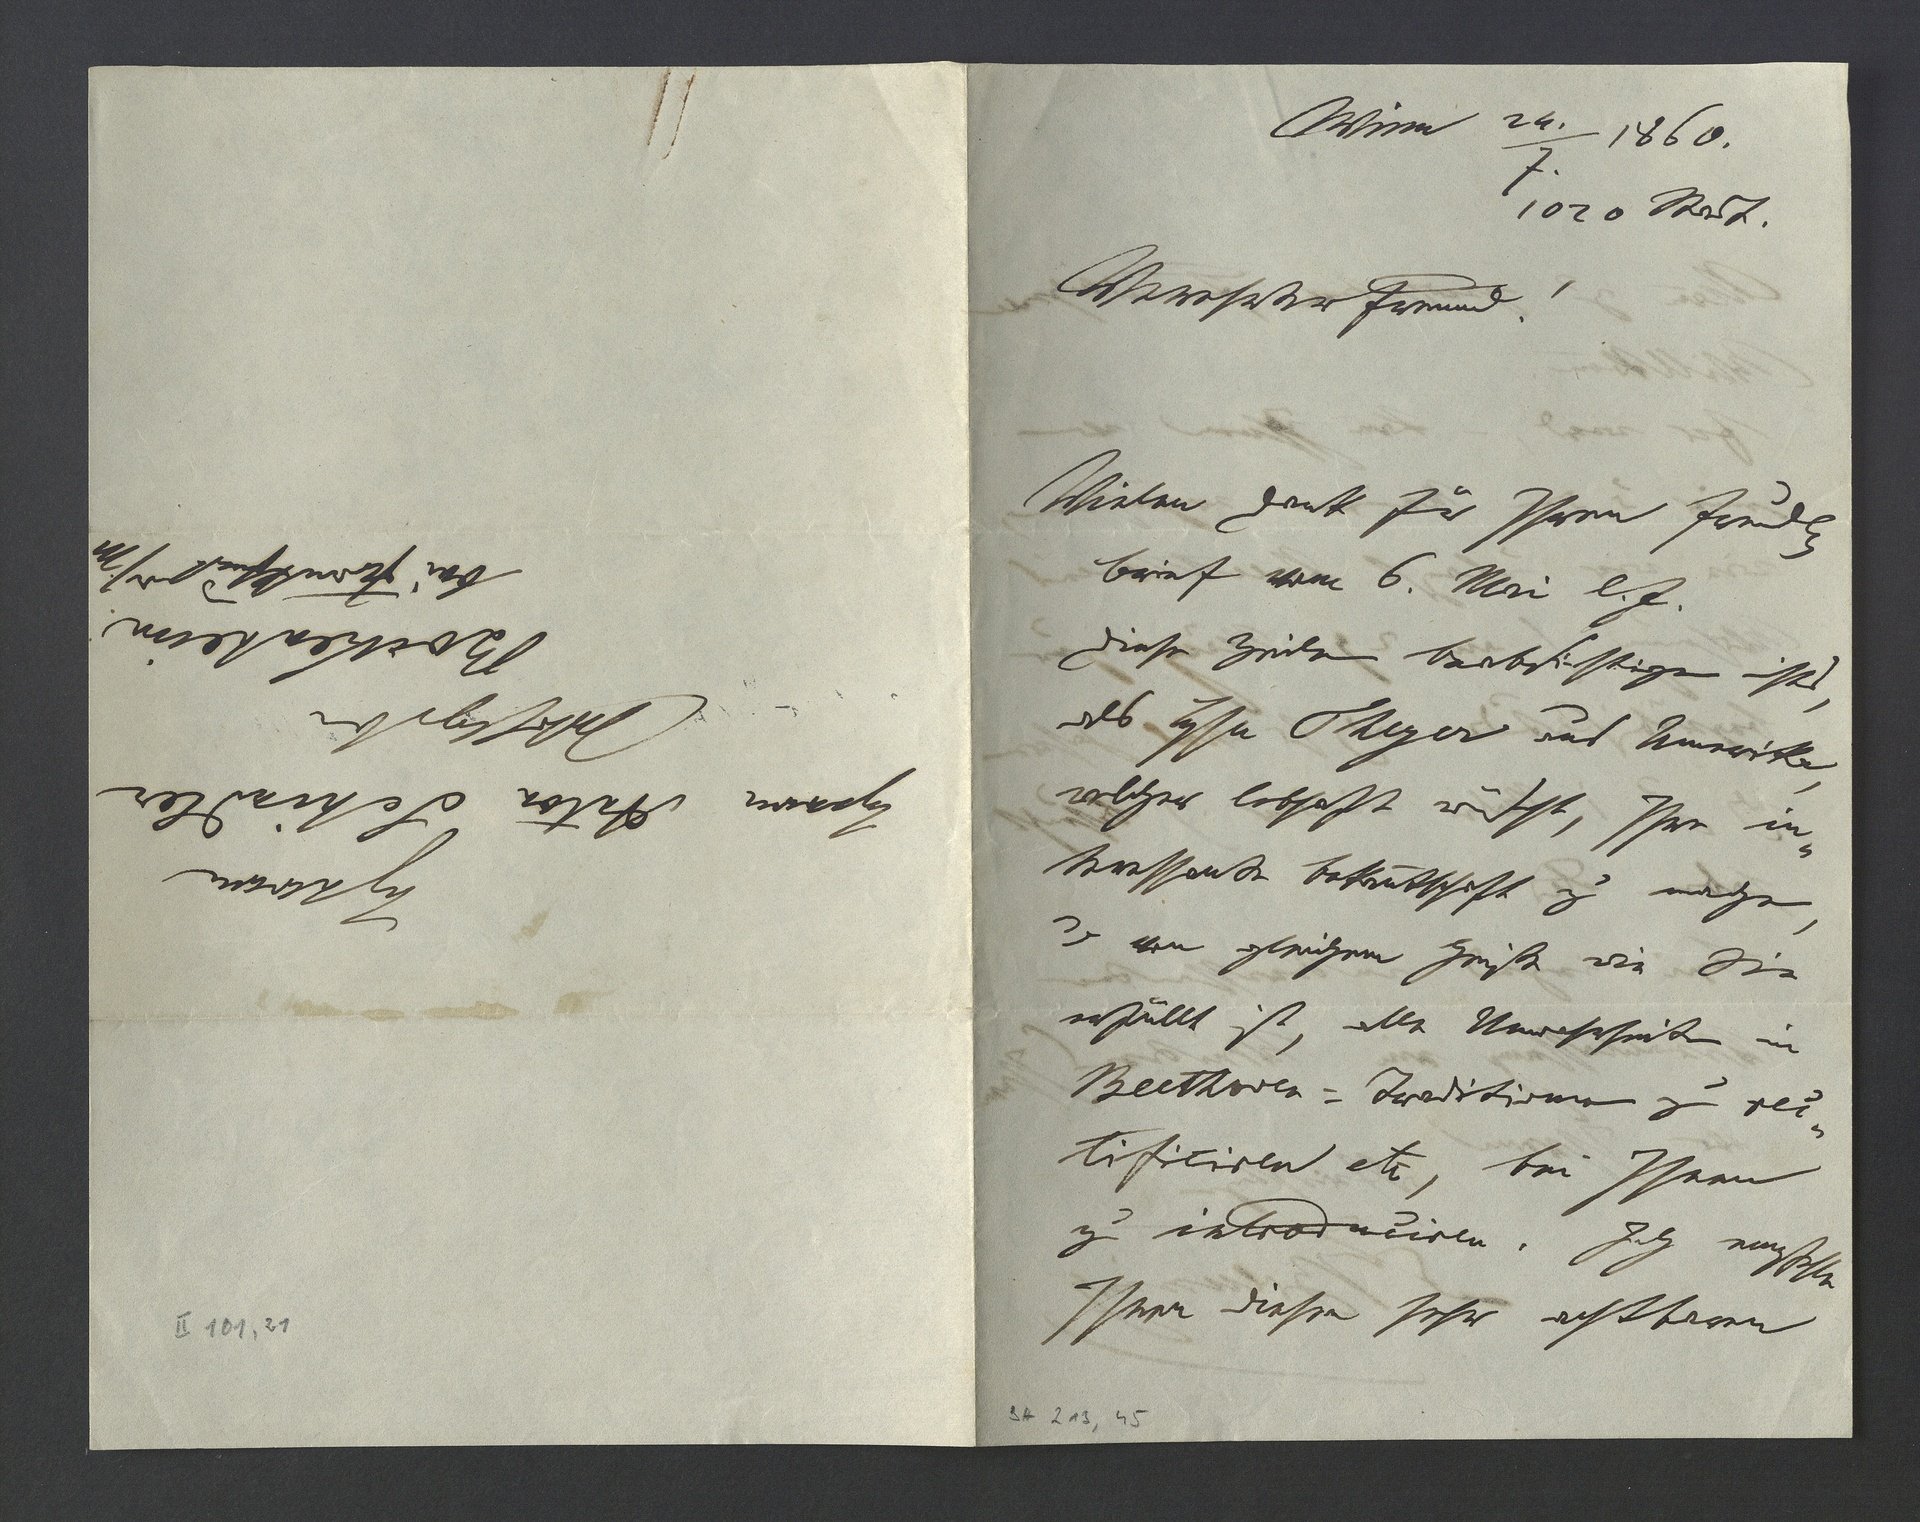 Wien 24./7. 1860.
1020 Stadt.
Verehrter Freund!
Vielen Dank für Ihren freundl
brief vom 6. Mai l. J.
Diese Zeilen beabsichtigen nichts,
als Hrn Thayer aus Amerika,
welcher lebhaft wünscht, Ihre in„
teressante bekanntschaft zu machen,
u von gleichem Geiste wie Sie
erfüllt ist, alle Unwahrheiten in
Beethoven=Traditionen zu rec„
tificiren etc, bei Ihnen
zu introduciren. Ich empfehle
Ihnen diesen sehr achtbaren
BH 213, 45
Herrn Anton Schindler
Bockenheim.
bei Frankfurt a/m
II 101,21